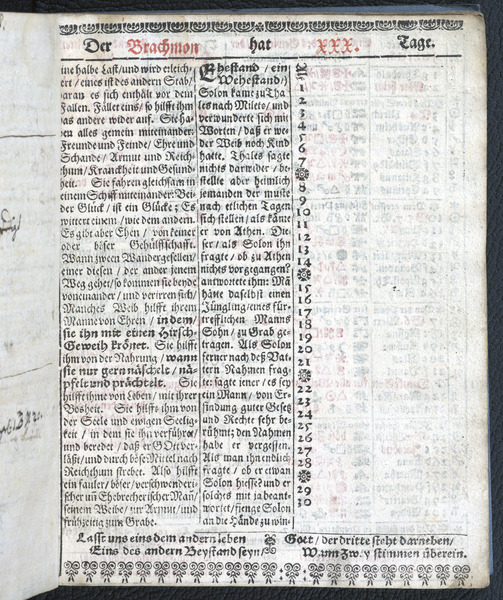 Der Brachmon hat XXX. Tage.
ine halbe Last/und wird erleich-
ert/eines ist des andern Stab/
daran es sich enthält vor dem
Fallen. Fället eins/so hilfft ihm
das andere wider auf. Sie ha-
ben alles gemein miteinander:
Freunde und Feinde/Ehre und
Schande/Armut und Reich-
thum/Kranckheit und Gesund-
heit. Sie fahren gleichsam in
einem Schiff miteinander: Bei-
der Glück/ist ein Glücke; Es
wittert einem/wie dem andern.
Es gibt aber Ehen/von keiner
oder böser Gehülffschafft.
Wann zween Wandergesellen/
einer diesen/der ander jenem
Weg gehet/so kommen sie beyde
voneinander/und verirren sich/
Manches Weib hilfft ihrem
Manne von Ehren/indem/
sie ihn mit einen Hirsch-
Geweih krönet. Sie hilfft
ihm von der Nahrung/wann
sie nur gern näschelt/nä-
pfelt und prächtelt. Sie
hilfft ihme von Leben/mit ihrer
Bosheit. Sie hilfft ihm von
der Seele und ewigen Seelig-
keit/in dem sie ihn verführet/
und beredet/daß er GOtt ver-
läßt/und durch böse Mittel nach
Reichthum strebet. Also hilfft
ein fauler/böser/verschwenderi-
scher uñ Ehebrecherischer Mañ/
seinem Weibe/zur Armut/und
frühzeitig zum Grabe.
Ehestand/ein
Wehestand/)
Solon kame zu Tha-
les nach Mileto/und
verwunderte sich mit
Worten/daß er we-
der Weib noch Kind
hatte. Thales sagte
nichts darwider/be-
stellte aber heimlich
jemanden der muste
nach etlichen Tagen
sich stellen/als käme
er von Athen. Die-
ser/als Solon ihn
fragte/ob zu Athen
nichts vorgegangen?
antwortete ihm: Mã
hätte daselbst einen
Jüngling/eines für-
trefflichen Manns
Sohn/zu Grab ge-
tragen. Als Solon
ferner nach deß Vat-
tern Nahmen frag-
te: sagte jener/es sey
ein Mann/von Er-
findung guter Gesetz
und Rechte sehr be-
rühmt; den Nahmen
habe er vergessen.
Als man ihn endlich
fragte/ob er etwan
Solon hiesse? und er
solches mit ja beant-
wortet/fienge Solon
an die Hände zu win-
1
2
3
4
5
6
7
8
9
10
11
12
13
14
15
16
17
18
19
20
21
22
23
24
25
26
27
28
29
30
Lasst uns eins dem andern leben
Eins des andern Beystand seyn/
Gott/der dritte steht darneben/
Wann Zwey stimmen überein.